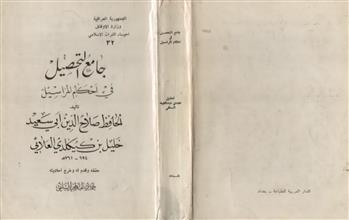 الجمهورية العراقية
وزارة الاوقاف
احياء التراث الاسلامي
٣٢
جامع التحصيل
في أحكام المراسيل
تأليف
الحافظ صلاح الدين أبي سعيد
خليل بن كيكلدي العلائي
٦٩٤ - ٧٦١هـ
حققه وقدم له وخرج احاديثه
حمدي عبد المجيد السلفي
جامع التحصيل
في
احكام المراسيل
تحقيق
حمدي عبدالمجيد
السلفي
بغداد
الدار العربية للطباعة - بغداد